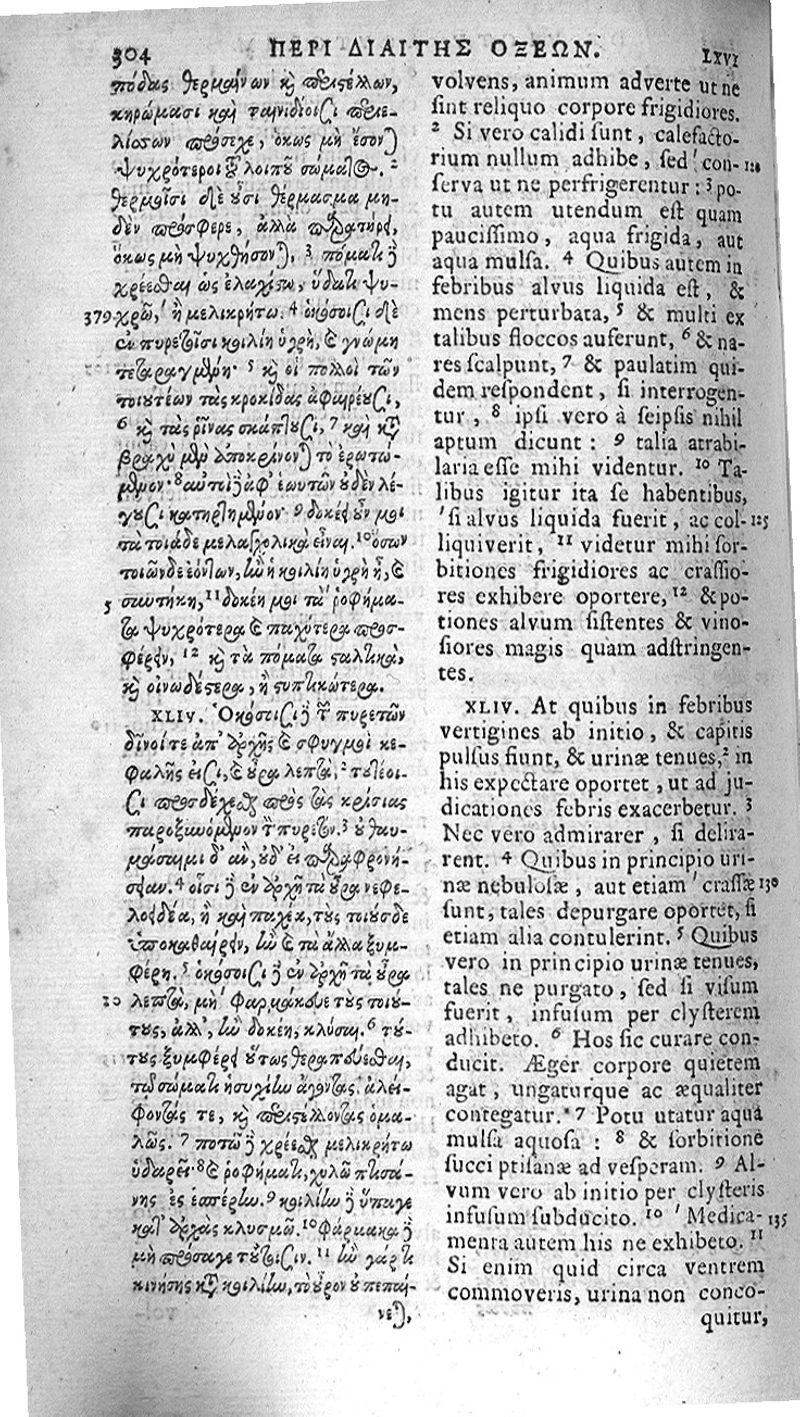 304 ΠΕΡΙ ΔΙΑΙΤΗΣ ΟΞΕΩΝ. LXVI
πόδας θερμαίνων κὶ περιστέλλων,
κηρώμασι καὶ ταινιδίοισι περιε-
λίσσων πρόσεχε, ὅκως μὴ ἔσονται
ψυχρότεροι τοῦ λοιποῦ σώματος. 2
θερμοῖσι δὲ οὖσι θέρμασμα μη-
δὲν πρόσφερε, ἀλλὰ παρατήρει,
ὅκως μὴ ψυχθήσονται, 3 πόματι δὲ
χρέεσθαι ὡς ἐλαχίστῳ, ὕδατι ψυ-
379 χρῷ, ἢ μελικρήτῳ. 4 ὁκόσοισι δὲ
ἐν πυρετοῖσι κοιλίη ὑγρὴ, καὶ γνώμη
τεταραγμένη· 5 κὶ οἱ πολλοὶ τῶν
τοιουτέων τὰς κροκίδας ἀφαιρέουσι,
6 κὶ τὰς ῥῖνας σκάπτουσι, 7 καὶ κατὰ
βραχὺ μὲν ἀποκρίνονται τὸ ἐρωτώ-
μενον· 8 αὐτοὶ δὲ ἀφ' ἑωυτῶν οὐδὲν λέ-
γουσι κατηρτημένον· 9 δοκέει οὖν μοι
τὰ τοιάδε μελαγχολικὰ εἶναι. 10 ὅσων
τοιῶνδε ἐόντων, ἢν ἡ κοιλίη ὑγρὴ ᾖ, καὶ
5 συντήκῃ, 11 δοκέῃ μοι τὰ ῥοφήμα-
τα ψυχρότερα καὶ παχύτερα προσ-
φέρειν, 12 κὶ τὰ πόματα στατικὰ,
κὶ οἰνωδέστερα, ἢ στυπτικώτερα.
XLIV. Ὁκόσοισι δὲ τῶν πυρετῶν
δῖνοί τε ἀπ' ἀρχῆς καὶ σφυγμοὶ κε-
φαλῆς εἰσι, καὶ οὖρα λεπτὰ, 2 τουτέοι-
σι προσδέχεσθαι πρὸς τὰς κρίσιας
παροξυνόμενον τὸν πυρετόν. 3 οὐ θαυ-
μάσαιμι δ' ἂν, οὐδ' εἰ παραφρονή-
σειαν. 4 οἷσι δὲ ἐν ἀρχῇ τὰ οὖρα νεφε-
λοειδέα, ἢ καὶ παχέα, τοὺς τοιούσδε
ὑποκαθαίρειν, ἢν καὶ τὰ ἄλλα ξυμ-
φέρῃ. 5 ὁκόσοισι δὲ ἐν ἀρχῇ τὰ οὖρα
10 λεπτὰ, μὴ φαρμάκευε τοὺς τοιού-
τους, ἀλλ', ἢν δοκέῃ, κλύσαι. 6 τού-
τους ξυμφέρει οὕτως θεραπεύεσθαι,
τῷ σώματι ἡσυχίην ἄγοντας ἀλεί-
φοντάς τε, κὶ περιστέλλοντας ὁμα-
λῶς. 7 ποτῷ δὲ χρέεσθαι μελικρήτῳ
ὑδαρεῖ· 8 καὶ ῥοφήματι, χυλῷ πτισά-
νης ἐς ἑσπέρην. 9 κοιλίην δὲ ὕπαγε
κατ' ἀρχὰς κλυσμῷ. 10 φάρμακα δὲ
μὴ πρόσαγε τούτοισιν. 11 ἢν γάρ τι
κινήσῃς κατὰ κοιλίην, τὸ οὖρον οὐ πεπαί-
νεται,
volvens, animum adverte ut ne
sint reliquo corpore frigidiores.
2 Si vero calidi sunt, calefacto-
rium nullum adhibe, sed ' con- 120
serva ut ne perfrigerentur: 3 po-
tu autem utendum est quam
paucissimo, aqua frigida, aut
aqua mulsa. 4 Quibus autem in
febribus alvus liquida est, &
mens perturbata, 5 & multi ex
talibus floccos auferunt, 6 & na-
res scalpunt, 7 & paulatim qui-
dem respondent, si interrogen-
tur, 8 ipsi vero à seipsis nihil
aptum dicunt: 9 talia atrabi-
laria esse mihi videntur. 10 Ta-
libus igitur ita se habentibus,
' si alvus liquida fuerit, ac col- 125
liquiverit, 11 videtur mihi sor-
bitiones frigidiores ac crassio-
res exhibere oportere, 12 & po-
tiones alvum sistentes & vino-
siores magis quam adstringen-
tes.
XLIV. At quibus in febribus
vertigines ab initio, & capitis
pulsus fiunt, & urinæ tenues, 2 in
his expectare oportet, ut ad ju-
dicationes febris exacerbetur. 3
Nec vero admirarer, si delira-
rent. 4 Quibus in principio uri-
næ nebulosæ, aut etiam ' crassæ 130
sunt, tales depurgare oportet, si
etiam alia contulerint. 5 Quibus
vero in principio urinæ tenues,
tales ne purgato, sed si visum
fuerit, infusum per clysterem
adhibeto. 6 Hos sic curare con-
ducit. Æger corpore quietem
agat, ungaturque ac æqualiter
contegatur. 7 Potu utatur aquâ
mulsa aquosa: 8 & sorbitione
succi ptisanæ ad vesperam. 9 Al-
vum vero ab initio per clysteris
infusum subducito. 10 ' Medica- 135
menta autem his ne exhibeto. 11
Si enim quid circa ventrem
commoveris, urina non conco-
quitur,